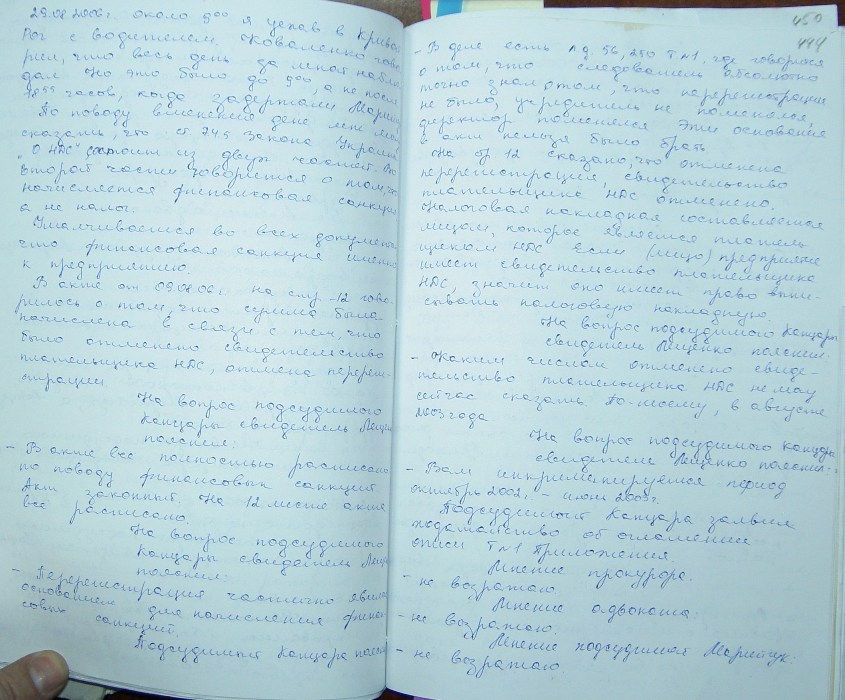 29.08.2006г. около 9⁰⁰ я уехав в Кривой
Рог с водителем. Коваленко гово-
рил, что весь день за мной наблю-
дал. Но это было до 9⁰⁰, а не после
часов, когда задержали
По поводу вменения мне
сказать, что ст 7.4.5 закона Украины
"О НДС" состоит из двух частей. Во
второй части говорится о том, что
начисляется финансовая санкция
а не налог.
Умалчивается во всех документах
что финансовая санкция именно
к предприятию.
В акте от 09.08.06г. на стр. -12 гово-
рилось о том, что сумма была
начислена в связи с тем, что
было отменено свидетельство
плательщика НДС, отмена перереги-
страции
На вопрос подсудимого
Канцары свидетель Лещенко
пояснил:
- В акте все полностью расписано
по поводу финансовых санкций.
Акт законный. На 12 листе акта
все расписано.
На вопрос подсудимого
Канцары свидетель Лещенко
пояснил:
- Перерегистрация частично явилась
основанием для начисления финан-
совых санкций.
Подсудимый Канцара пояснил
450
444
- В деле есть л.д. 56, 250 Т№1, где говорится
о том, что следователь абсолютно
точно знал о том, что перерегистрации
не было, учредитель не поменялся,
директор поменялся Эти основания
в акт нельзя было брать
На стр. 12 сказано, что отменена
перерегистрация, свидетельство
плательщика НДС отменено.
Налоговая накладная составляется
лицом, которое является платель-
щиком НДС Если (лицо) предприятие
имеет свидетельство плательщика
НДС, значит оно имеет право выпи-
сывать налоговую накладную.
На вопрос подсудимого Канцары
свидетель Лещенко пояснил:
- Каким числом отменено свиде-
тельство плательщика НДС не могу
сейчас сказать По-моему, в августе
2003 года
На вопрос подсудимого Канцары
свидетель Лещенко пояснил:
- Вам инкриминируется период
октябрь 2002г. - июнь 2003г.
Подсудимый Канцара заявил
ходатайство об оглашении
описи Т№1 Приложения.
Мнение прокурора.
- не возражаю
Мнение адвоката
- не возражаю.
Мнение подсудимой Марийчук.
- не возражаю